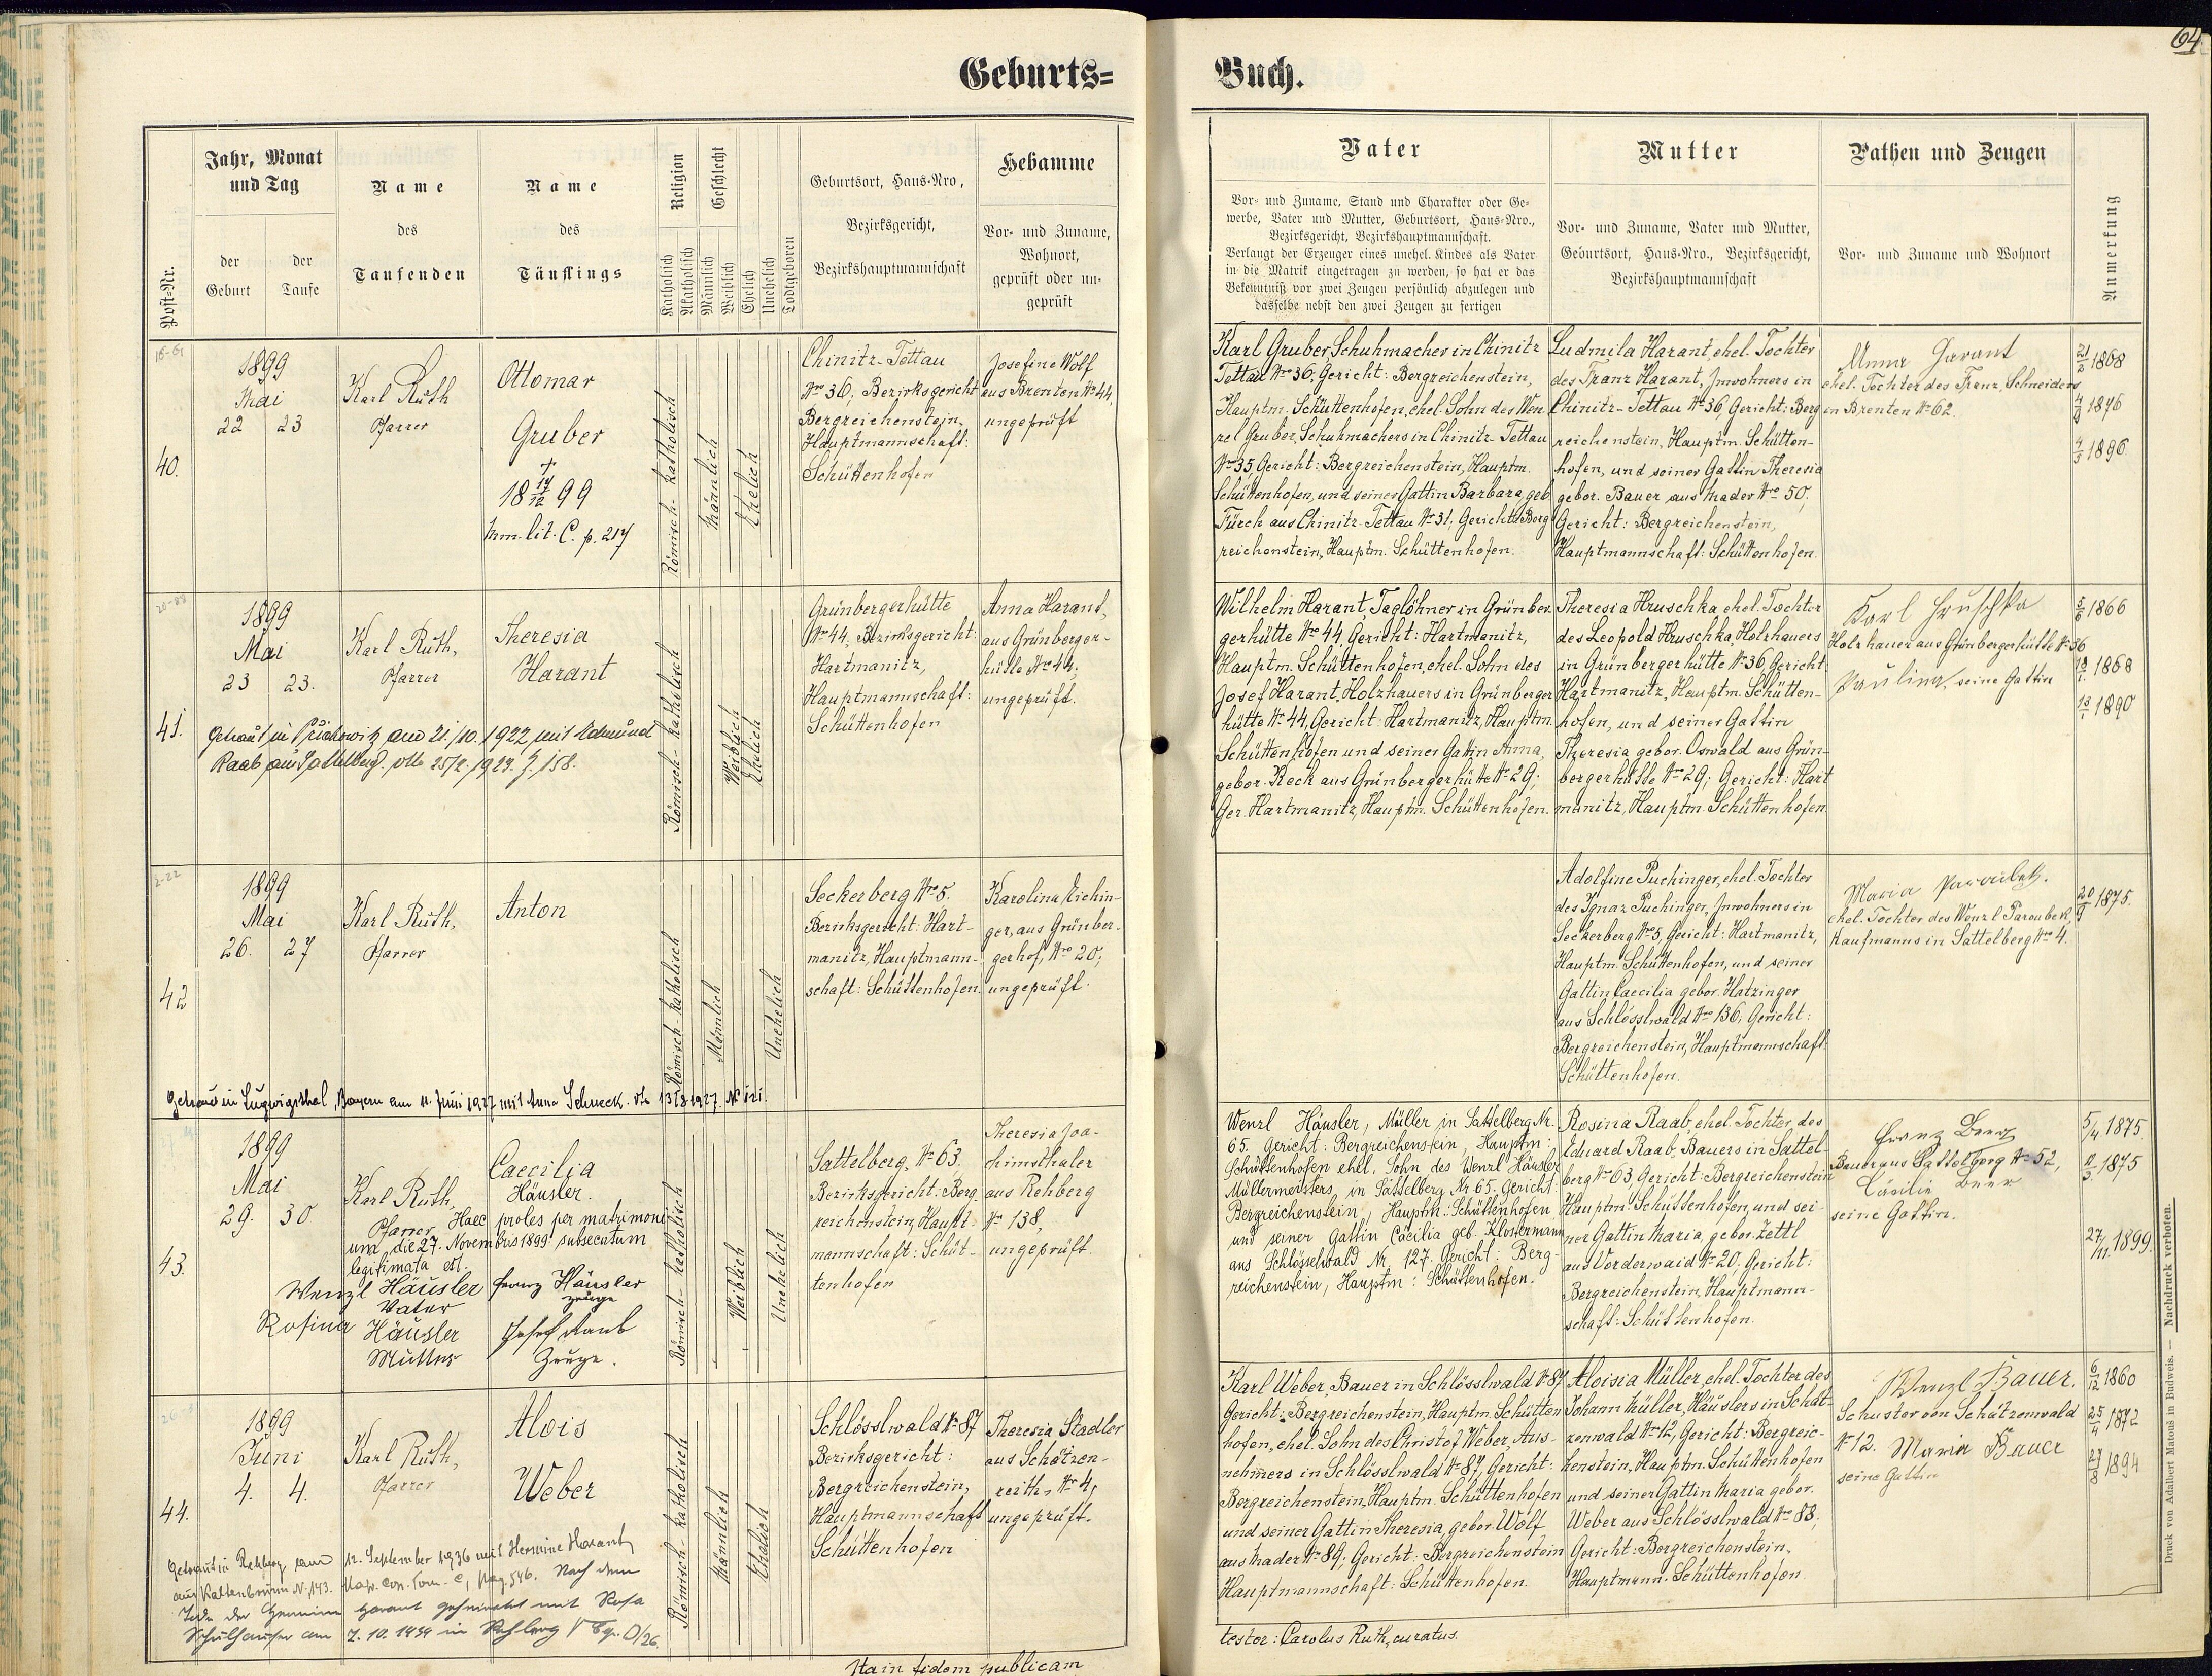 64
Geburts=
Buch.
Post-Nr.
Jahr, Monat
und Tag
der
Geburt
der
Taufe
Name
des
Taufenden
Name
des
Täuflings
Religion
Katholisch
Akatholisch
Geschlecht
Männlich
Weiblich
Ehelich
Unehelich
Todtgeboren
Geburtsort, Haus-Nro,
Bezirksgericht,
Bezirkshauptmannschaft
Hebamme
Vor- und Zuname,
Wohnort,
geprüft oder un-
geprüft
Vater
Vor- und Zuname, Stand und Charakter oder Ge-
werbe, Vater und Mutter, Geburtsort, Haus-Nro.,
Bezirksgericht, Bezirkshauptmannschaft.
Verlangt der Erzeuger eines unehel. Kindes als Vater
in die Matrik eingetragen zu werden, so hat er das
Bekenntniß vor zwei Zeugen persönlich abzulegen und
dasselbe nebst den zwei Zeugen zu fertigen
Mutter
Vor- und Zuname, Vater und Mutter,
Geburtsort, Haus-Nro., Bezirksgericht,
Bezirkshauptmannschaft
Pathen und Zeugen
Vor- und Zuname und Wohnort
Anmerkung
40.
1899
Mai
22 23
Karl Ruth
Pfarrer
Ottomar
Gruber
†
18 14/12 99
Mm. lit. C. p. 217
Römisch-katholisch
Männlich
Ehelich
Chinitz-Tettau
Nro 36, Bezirksgericht
Bergreichenstein,
Hauptmannschaft:
Schüttenhofen
Josefine Wolf
aus Brenten No 44,
ungeprüft
Karl Gruber, Schuhmacher in Chinitz
Tettau Nro 36, Gericht: Bergreichenstein,
Hauptm. Schüttenhofen, ehel. Sohn des Wen
zel Gruber, Schuhmachers in Chinitz-Tettau
Nro 35, Gericht: Bergreichenstein, Hauptm.
Schüttenhofen, und seiner Gattin Barbara, geb.
Fürch aus Chinitz-Tettau No 31; Gericht: Berg
reichenstein, Hauptm. Schüttenhofen.
Ludmila Harant, ehel. Tochter
des Franz Harant, Inwohners in
Chinitz-Tettau No 36, Gericht: Berg
reichenstein, Hauptm. Schütten-
hofen, und seiner Gattin Theresia
gebor. Bauer aus Mader Nro 50,
Gericht: Bergreichenstein,
Hauptmannschaft: Schüttenhofen.
Anna Harant
ehel. Tochter des Franz, Schneiders
in Brenten No 62.
21/2 1868
1876
1896
41.
1899
Mai
23 23.
Karl Ruth,
Pfarrer
Theresia
Harant
Getraut in Přichowitz am 21./10. 1922 mit Edmund
Raab aus Sattelberg. dto 25/2. 1923. Z. 158.
Römisch-katholisch
Weiblich
Ehelich
Grünbergerhütte
Nro 44, Bezirksgericht:
Hartmanitz,
Hauptmannschaft:
Schüttenhofen
Anna Harant,
aus Grünberger-
hütte Nro 44,
ungeprüft.
Wilhelm Harant, Taglöhner in Grünber
gerhütte Nro 44, Gericht: Hartmanitz,
Hauptm. Schüttenhofen, ehel. Sohn des
Josef Harant, Holzhauers in Grünberger
hütte No 44, Gericht: Hartmanitz, Hauptm.
Schüttenhofen und seiner Gattin Anna,
gebor. Reck aus Grünbergerhütte No 29;
Ger. Hartmanitz, Hauptm. Schüttenhofen.
Theresia Hruschka, ehel. Tochter
des Leopold Hruschka, Holzhauers
in Grünbergerhütte No 36, Gericht
Hartmanitz, Hauptm. Schütten-
hofen, und seiner Gattin
Theresia gebor. Oswald aus Grün-
bergerhütte Nro 29; Gericht: Hart
manitz, Hauptm. Schüttenhofen.
Karl Hruschka
Holzhauer aus Grünbergerhütte No 36
Paulina, seine Gattin
1866
1868
1890
42
1899
Mai
26. 27
Karl Ruth,
Pfarrer
Anton
Getraut in Ludwigsthal, Bayern am 11. Juni 1927 mit Anna Schreck. dto 13/8 1927. No 121.
Römisch-katholisch
Männlich
Unehelich
Seckerberg Nro 5.
Bezirksgericht: Hart-
manitz, Hauptmann-
schaft: Schüttenhofen.
Karolina Eichin-
ger, aus Grünber-
gerhof, Nro 20;
ungeprüft.
Adolfine Puchinger, ehel. Tochter
des Ignaz Puchinger, Inwohners in
Seckerberg Nro 5, Gericht: Hartmanitz,
Hauptm. Schüttenhofen, und seiner
Gattin Caecilia gebor. Hatzinger
aus Schlösslwald Nro 136; Gericht:
Bergreichenstein, Hauptmannschaft:
Schüttenhofen.
Maria Paroubek.
ehel. Tochter des Wenzl Paroubek,
Kaufmanns in Sattelberg Nro 4.
20/9 1875.
43.
1899
Mai
29. 30
Karl Ruth,
Pfarrer
Caecilia
Häusler.
Haec proles per matrimoni-
um die 27. Novembris 1899 subsecutum
legitimata est.
Wenzl Häusler
Vater
Rosina Häusler
Mutter
Franz Häusler
Zeuge
Josef Raab
Zeuge.
Römisch-katholisch
Weiblich
Unehelich
Sattelberg, No 63.
Bezirksgericht: Berg
reichenstein, Haupt-
mannschaft: Schüt-
tenhofen
Theresia Joa-
chimsthaler
aus Rehberg
No 138,
ungeprüft
Wenzl Häusler, Müller in Sattelberg Nr.
65. Gericht: Bergreichenstein, Hauptm:
Schüttenhofen ehel. Sohn des Wenzl Häusler
Müllermeisters in Sattelberg Nr 65. Gericht:
Bergreichenstein, Hauptm: Schüttenhofen
und seiner Gattin Cäcilia geb. Klostermann
aus Schlösselwald Nr. 127. Gericht: Berg-
reichenstein, Hauptm: Schüttenhofen.
Rosina Raab, ehel. Tochter des
Eduard Raab, Bauers in Sattel-
berg No 63, Gericht: Bergreichenstein
Hauptm. Schüttenhofen, und sei-
ner Gattin Maria, gebor. Zettl
aus Vorderwaid No 20. Gericht:
Bergreichenstein, Hauptmann-
schaft: Schüttenhofen.
Franz Beer
Bauer aus Sattelberg No 52,
Cäcilie Beer
seine Gattin.
5/4 1875.
1875
27/11. 1899.
44.
1899
Juni
4. 4.
Karl Ruth,
Pfarrer
Alois
Weber
Getraut in Rehberg am 12. September 1936 mit Hermine Harant
aus Kaltenbrunn N. 143. Map. Cop. Tom. C, Pag. 546. Nach dem
Tode der Hermine Harant geheiratet mit Rosa
Schulhauser am 7. 10. 1939 in Rehberg
Römisch-katholisch
Männlich
Ehelich
Schlösslwald No 87
Bezirksgericht:
Bergreichenstein,
Hauptmannschaft
Schüttenhofen
Theresia Stadler
aus Schätzen-
reith, No 4,
ungeprüft.
Karl Weber, Bauer in Schlösslwald No 87
Gericht: Bergreichenstein, Hauptm. Schütten
hofen, ehel. Sohn des Christof Weber, Aus-
nehmers in Schlösslwald No 87, Gericht:
Bergreichenstein, Hauptm. Schüttenhofen
und seiner Gattin Theresia, gebor. Wolf
aus Mader No 89, Gericht: Bergreichenstein
Hauptmannschaft: Schüttenhofen.
Aloisia Müller, ehel. Tochter des
Johann Müller, Häuslers in Schät-
zenwald Nro 12, Gericht: Bergreic-
henstein, Hauptm. Schüttenhofen
und seiner Gattin Maria gebor.
Weber aus Schlösslwald No 88,
Gericht: Bergreichenstein,
Hauptmann. Schüttenhofen
Wenzl Bauer.
Schuster von Schätzenwald
No 12. Maria Bauer
seine Gattin
6/12 1860
25/4 1872
1894
Ita in fidem publicam
testor: Carolus Ruth, curatus.
Druck von Adalbert Matouš in Budweis. — Nachdruck verboten.